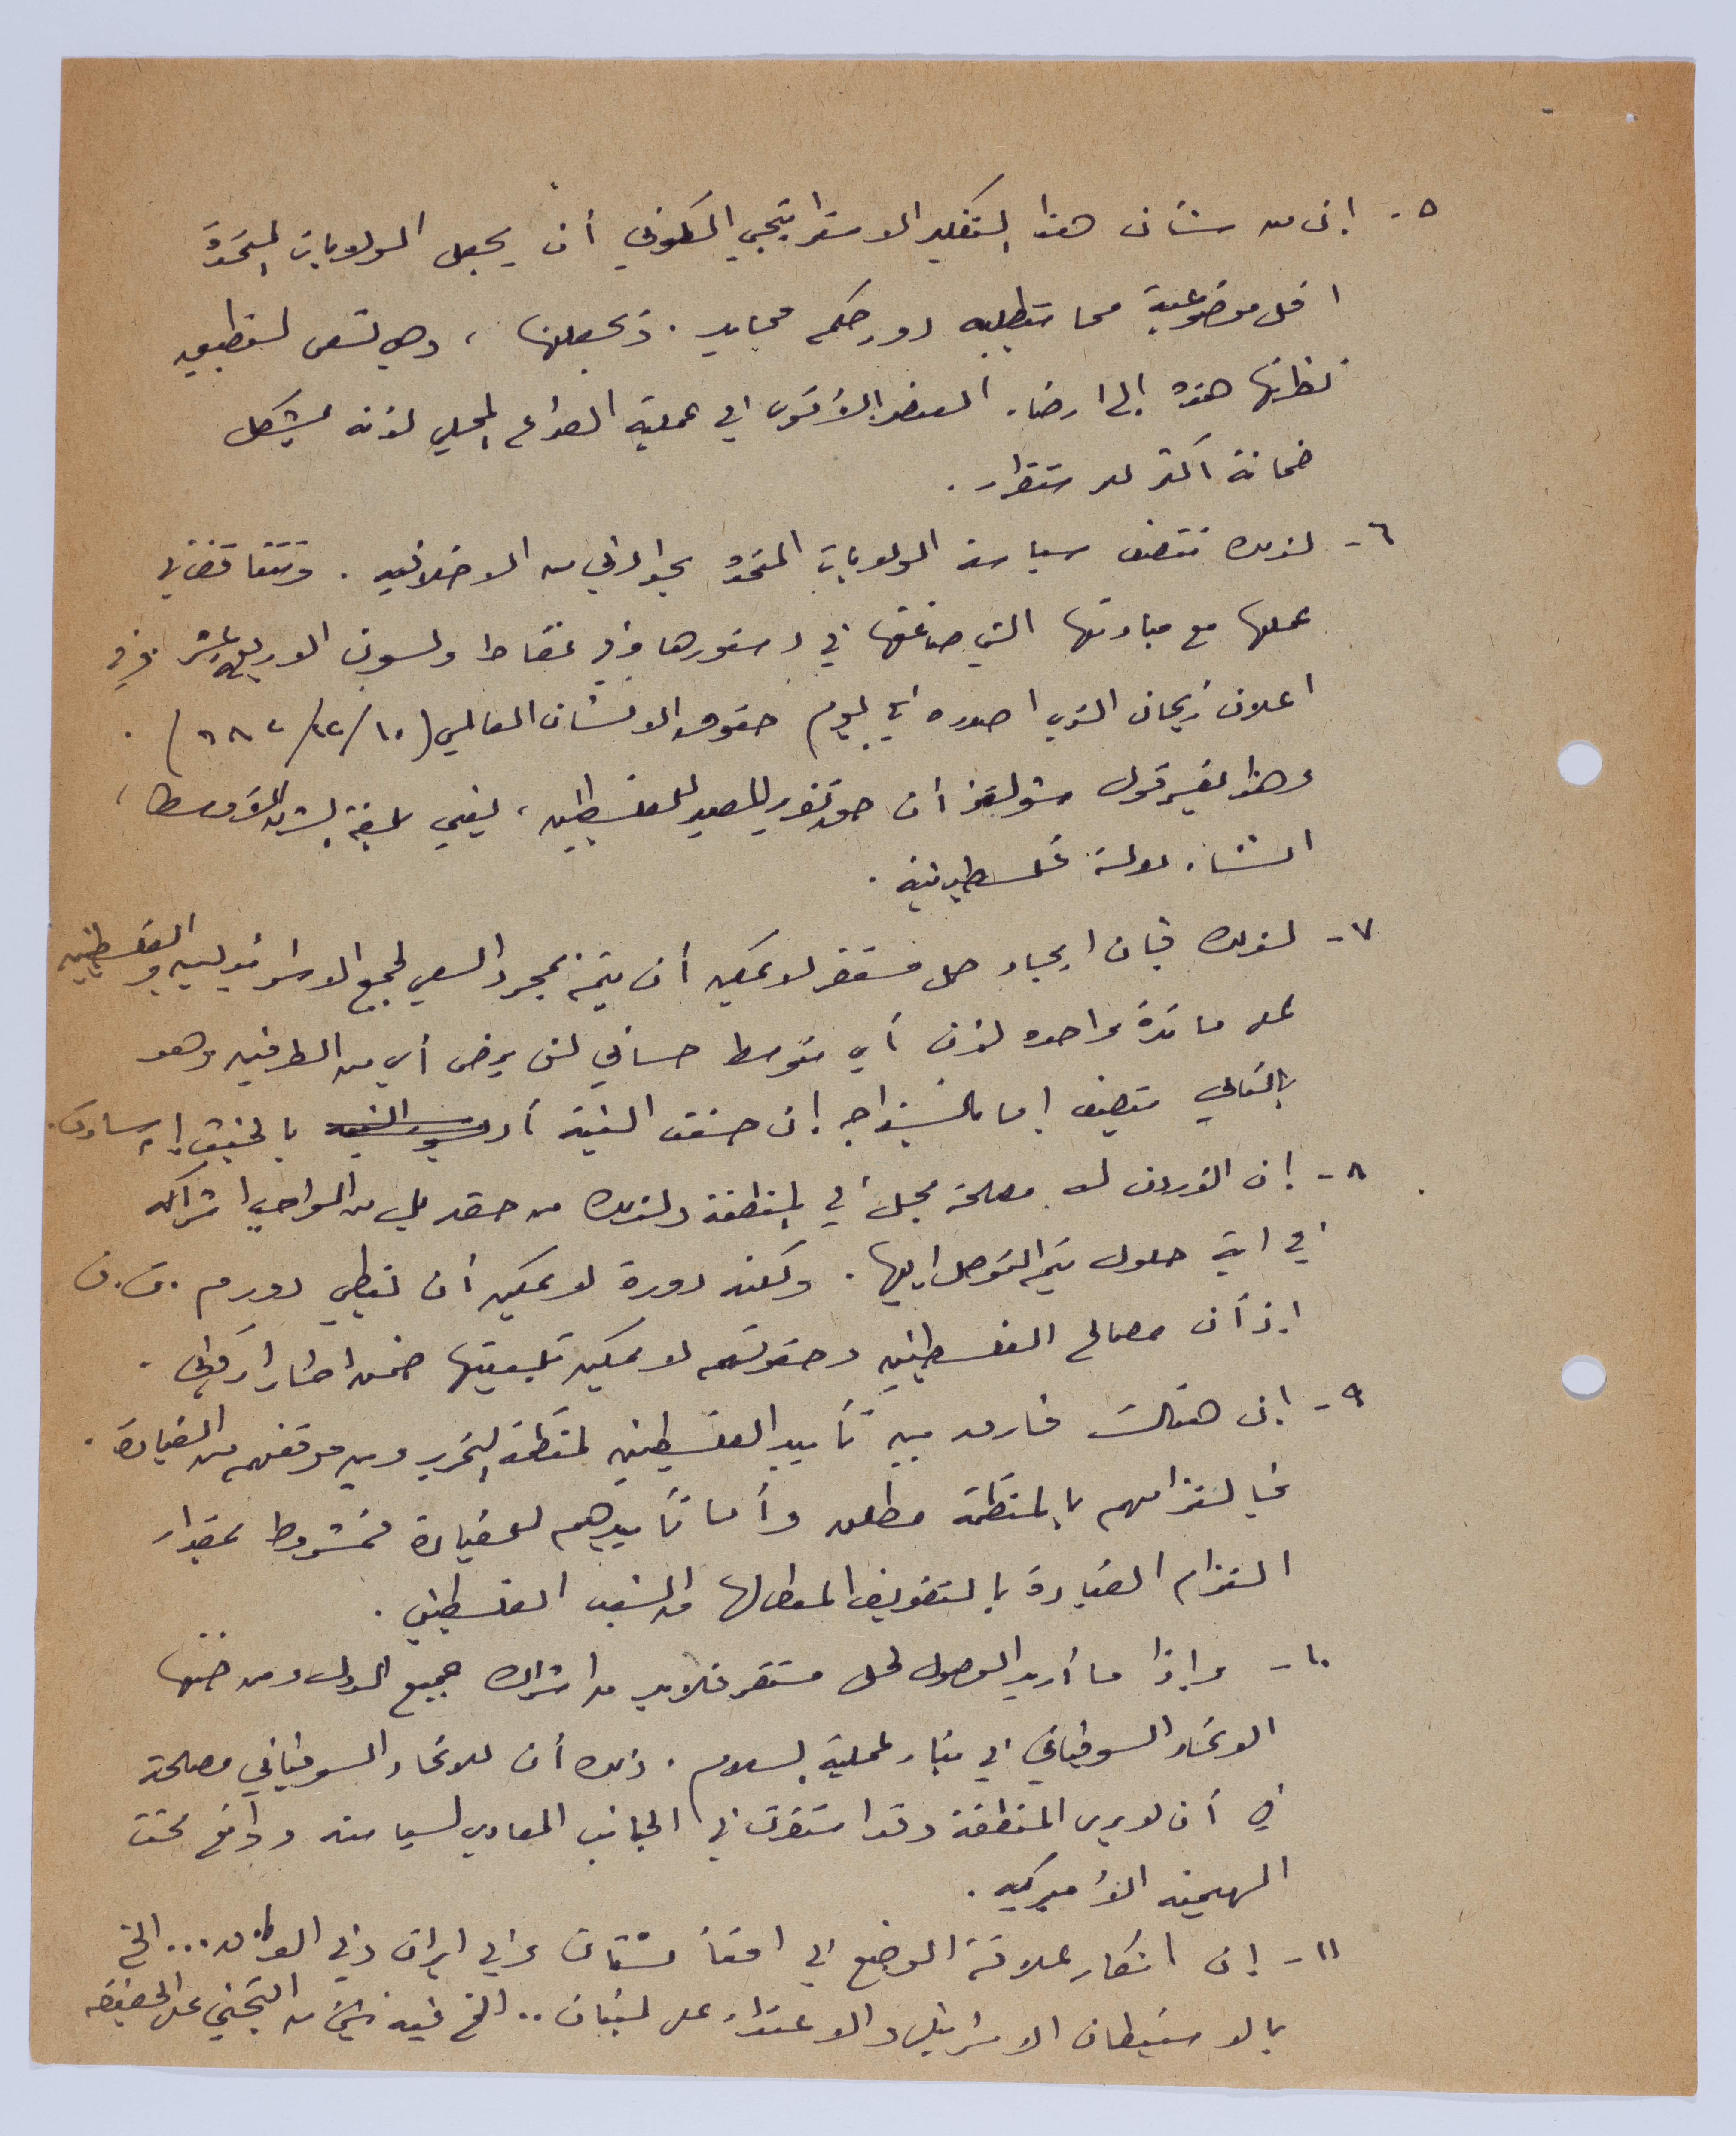 ٥- إن من شأن هذا التفكير الاستراتيجي الكوني أن يجعل الولايات المتحدة
اقل موضوعية مما يتطلبه دور حكم محايد. ويجعلها، وهي تسعى لتطبيق
نظرتها هذه إلى ارضاء العنصر الأقوى في عملية الصراع المحلي لأنه يشكل
ضمانة أكثر للاستقرار.
٦- لذلك تتصف سياسة الولايات المتحدة بجو لا أخلاقي من الاخلاقيه. وتتناقض في
عملها مع مبادئها التي صاغتها في دستورها وفي نقاط ولسون الاربع عشر وفي
اعلان ريجان الذي اصدره في يوم حقوق الانسان العالمي (١٠/١٢/٩٨٢).
وهذا يفسر قول شولتز أن حق تقرير المصير للفلسطينيين، ليعني بلغة الشرق الأوسط،
انشاء دولة فلسطينية.
٧- لذلك فإن ايجاد حل مستقر لا يمكن أن يتم بمجرد السعي لجمع الاسرائيليين والفلسطينيين
على مائدة واحده لأن أي متوسط حسابي لن يرضي أي من الطرفين وهو
بالتالي متصف إما بالسذاجه إن حسنت النية أو بالخبث إن ساءت.
٨- إن الأردن له مصلحة مجل في المنطقة ولذلك من حقه بل من الواجب اشراكه
في اية حلول يتم التوصل اليها. ولكن دوره لا يمكن أن يغطي دور م.ت.ف
إذ أن مصالح الفلسطينيين وحقوقهم لا يمكن تلبيتها ضمن اطار أردني.
٩- إن هنالك فارق بين تأييد الفلسطينيين لمنظمة التحرير وبين موقفهم من القيادة.
فالتزامهم بالمنظمة مطلق وأما تأييدهم للقيادة فمشروط بمقدار
التزام القيادة بالتفويض المعطى لها من الشعب الفلسطيني.
١٠- وإذا ما أريد الوصول لحل مستقر فلابد من اشراك جميع الدول ومن ضمنها
الاتحاد السوفياتي في عملية السلام. ذلك أن للاتحاد السوفياتي مصلحة
في أن لا يرى المنطقة وقد استقرت في الجانب المعادي لسياسته وواقع تحت
الهيمنه الأميركيه.
١١- إن انكار علاقة الوضع في افغانستان وفي ايران وفي العراق ... الخ
بالاستيطان الاسرائيلي والاعتداء على لبنان .. الخ فيه شيء من التجني على الحقيقه